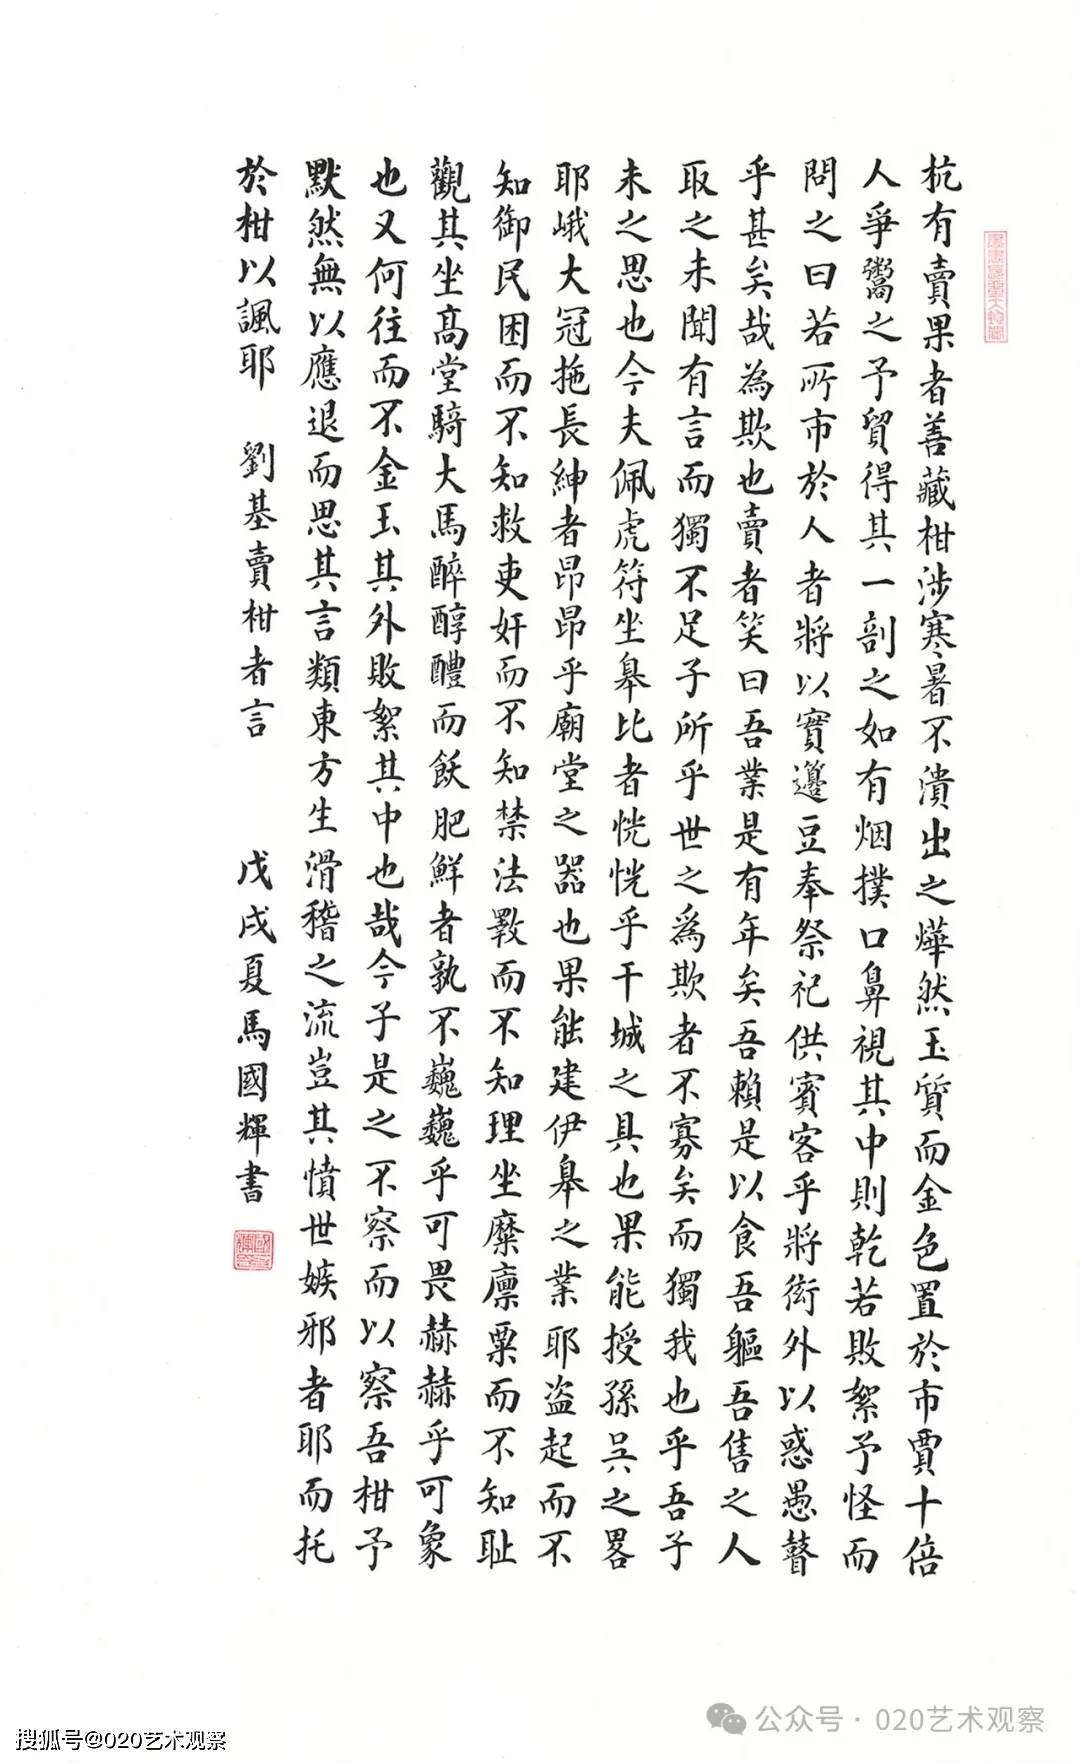 杭有賣果者善藏柑涉寒暑不潰出之燁然玉質而金色置於市賈十倍
人爭鬻之予貿得其一剖之如有烟撲口鼻視其中則乾若敗絮予怪而
問之曰若所市於人者將以實籩豆奉祭祀供賓客乎將衒外以惑愚瞽
乎甚矣哉為欺也賣者笑曰吾業是有年矣吾賴是以食吾軀吾售之人
取之未聞有言而獨不足子所乎世之爲欺者不寡矣而獨我也乎吾子
未之思也今夫佩虎符坐皋比者恍恍乎干城之具也果能授孫吳之畧
耶峨大冠拖長紳者昂昂乎廟堂之器也果能建伊皋之業耶盜起而不
知御民困而不知救吏奸而不知禁法斁而不知理坐糜廩粟而不知耻
觀其坐高堂騎大馬醉醇醴而飫肥鮮者孰不巍巍乎可畏赫赫乎可象
也又何往而不金玉其外敗絮其中也哉今子是之不察而以察吾柑予
默然無以應退而思其言類東方生滑稽之流豈其憤世嫉邪者耶而托
於柑以諷耶 劉基賣柑者言 戊戌夏馬國輝書
搜狐号@020艺术观察
公众号·020艺术观察